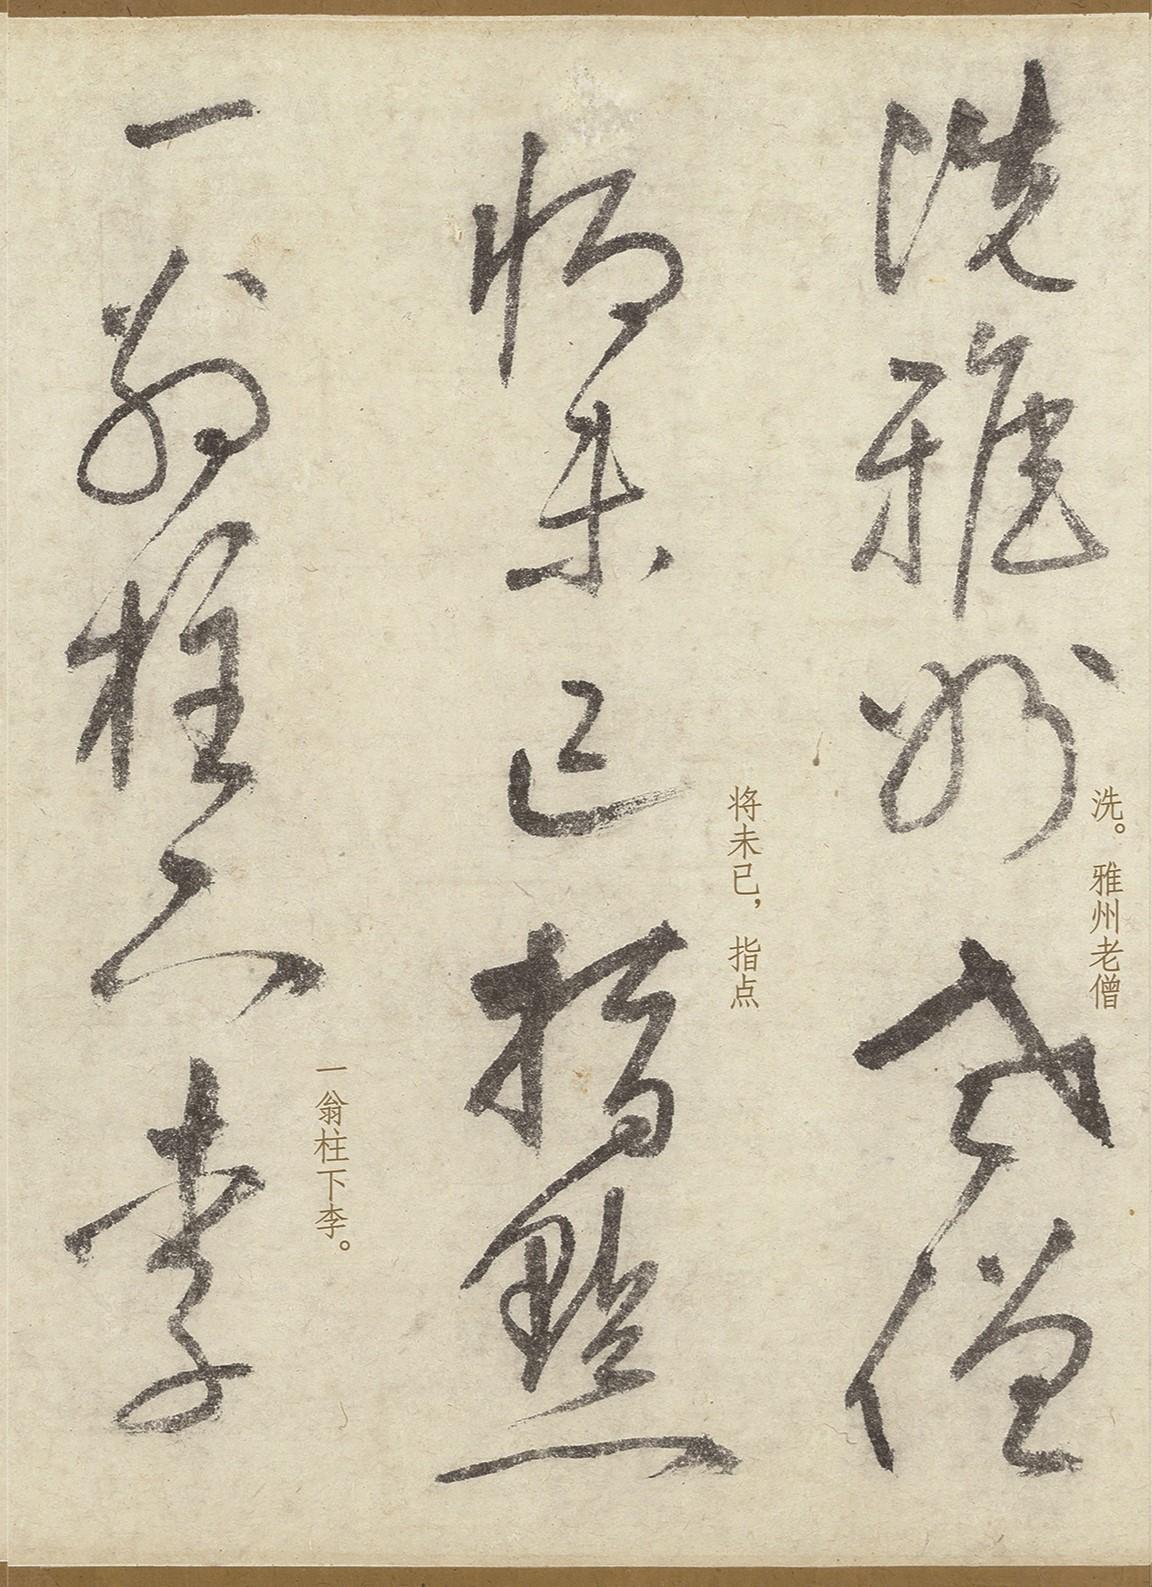 洗雅州老僧
洗。雅州老僧
將未已指點
将未已，指点
一翁柱下李
一翁柱下李。